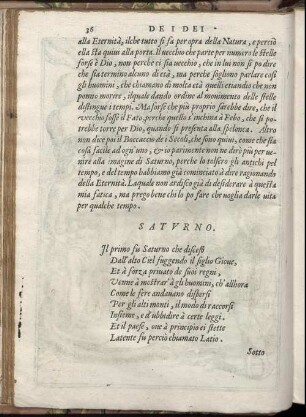 36 DE I DEI
alla Eternità, ilche tutto si fa per opra della Natura, e perciò
ella sta quiui alla porta. Il vecchio che parte per numero le stelle
forse è Dio, non perche ei sia vecchio, che in lui non si può dire
che sia termino alcuno di età, ma perche sogliono parlare così
gli huomini, che chiamano di molta età quelli etiandio che non
ponno morire, ilquale dando ordine al mouimento delle stelle
distingue i tempi. Ma forse che più proprio sarebbe dire, che il
vecchio fosse il Fato, perche quello s'inchina à Febo, che si po-
trebbe torre per Dio, quando si presenta alla spelonca. Altro
non dice poi il Boccaccio de i Secoli, che sono quiui, come che sia
cosa facile ad ogn'uno, & io parimente non ne dirò più per ue-
nire alla imagine di Saturno, perche lo tolsero gli antichi pel
tempo, e del tempo habbiamo già cominciato à dire ragionando
della Eternità. Laquale non ardisco già di desiderare à questa
mia fatica, ma prego bene chi lo po fare che voglia darle uita
per qualche tempo.
SATVRNO.
Il primo fù Saturno che discese
Dall'alto Ciel fuggendo il figlio Gioue,
Et à forza priuato de suoi regni,
Venne à mostrar' à gli huomini, ch'allhora
Come le fere andauano dispersi
Per gli alti monti, il modo di raccorsi
Insieme, e d'ubbidire à certe leggi.
Et il paese, oue à principio ei stette
Latente fu perciò chiamato Latio.
Sotto